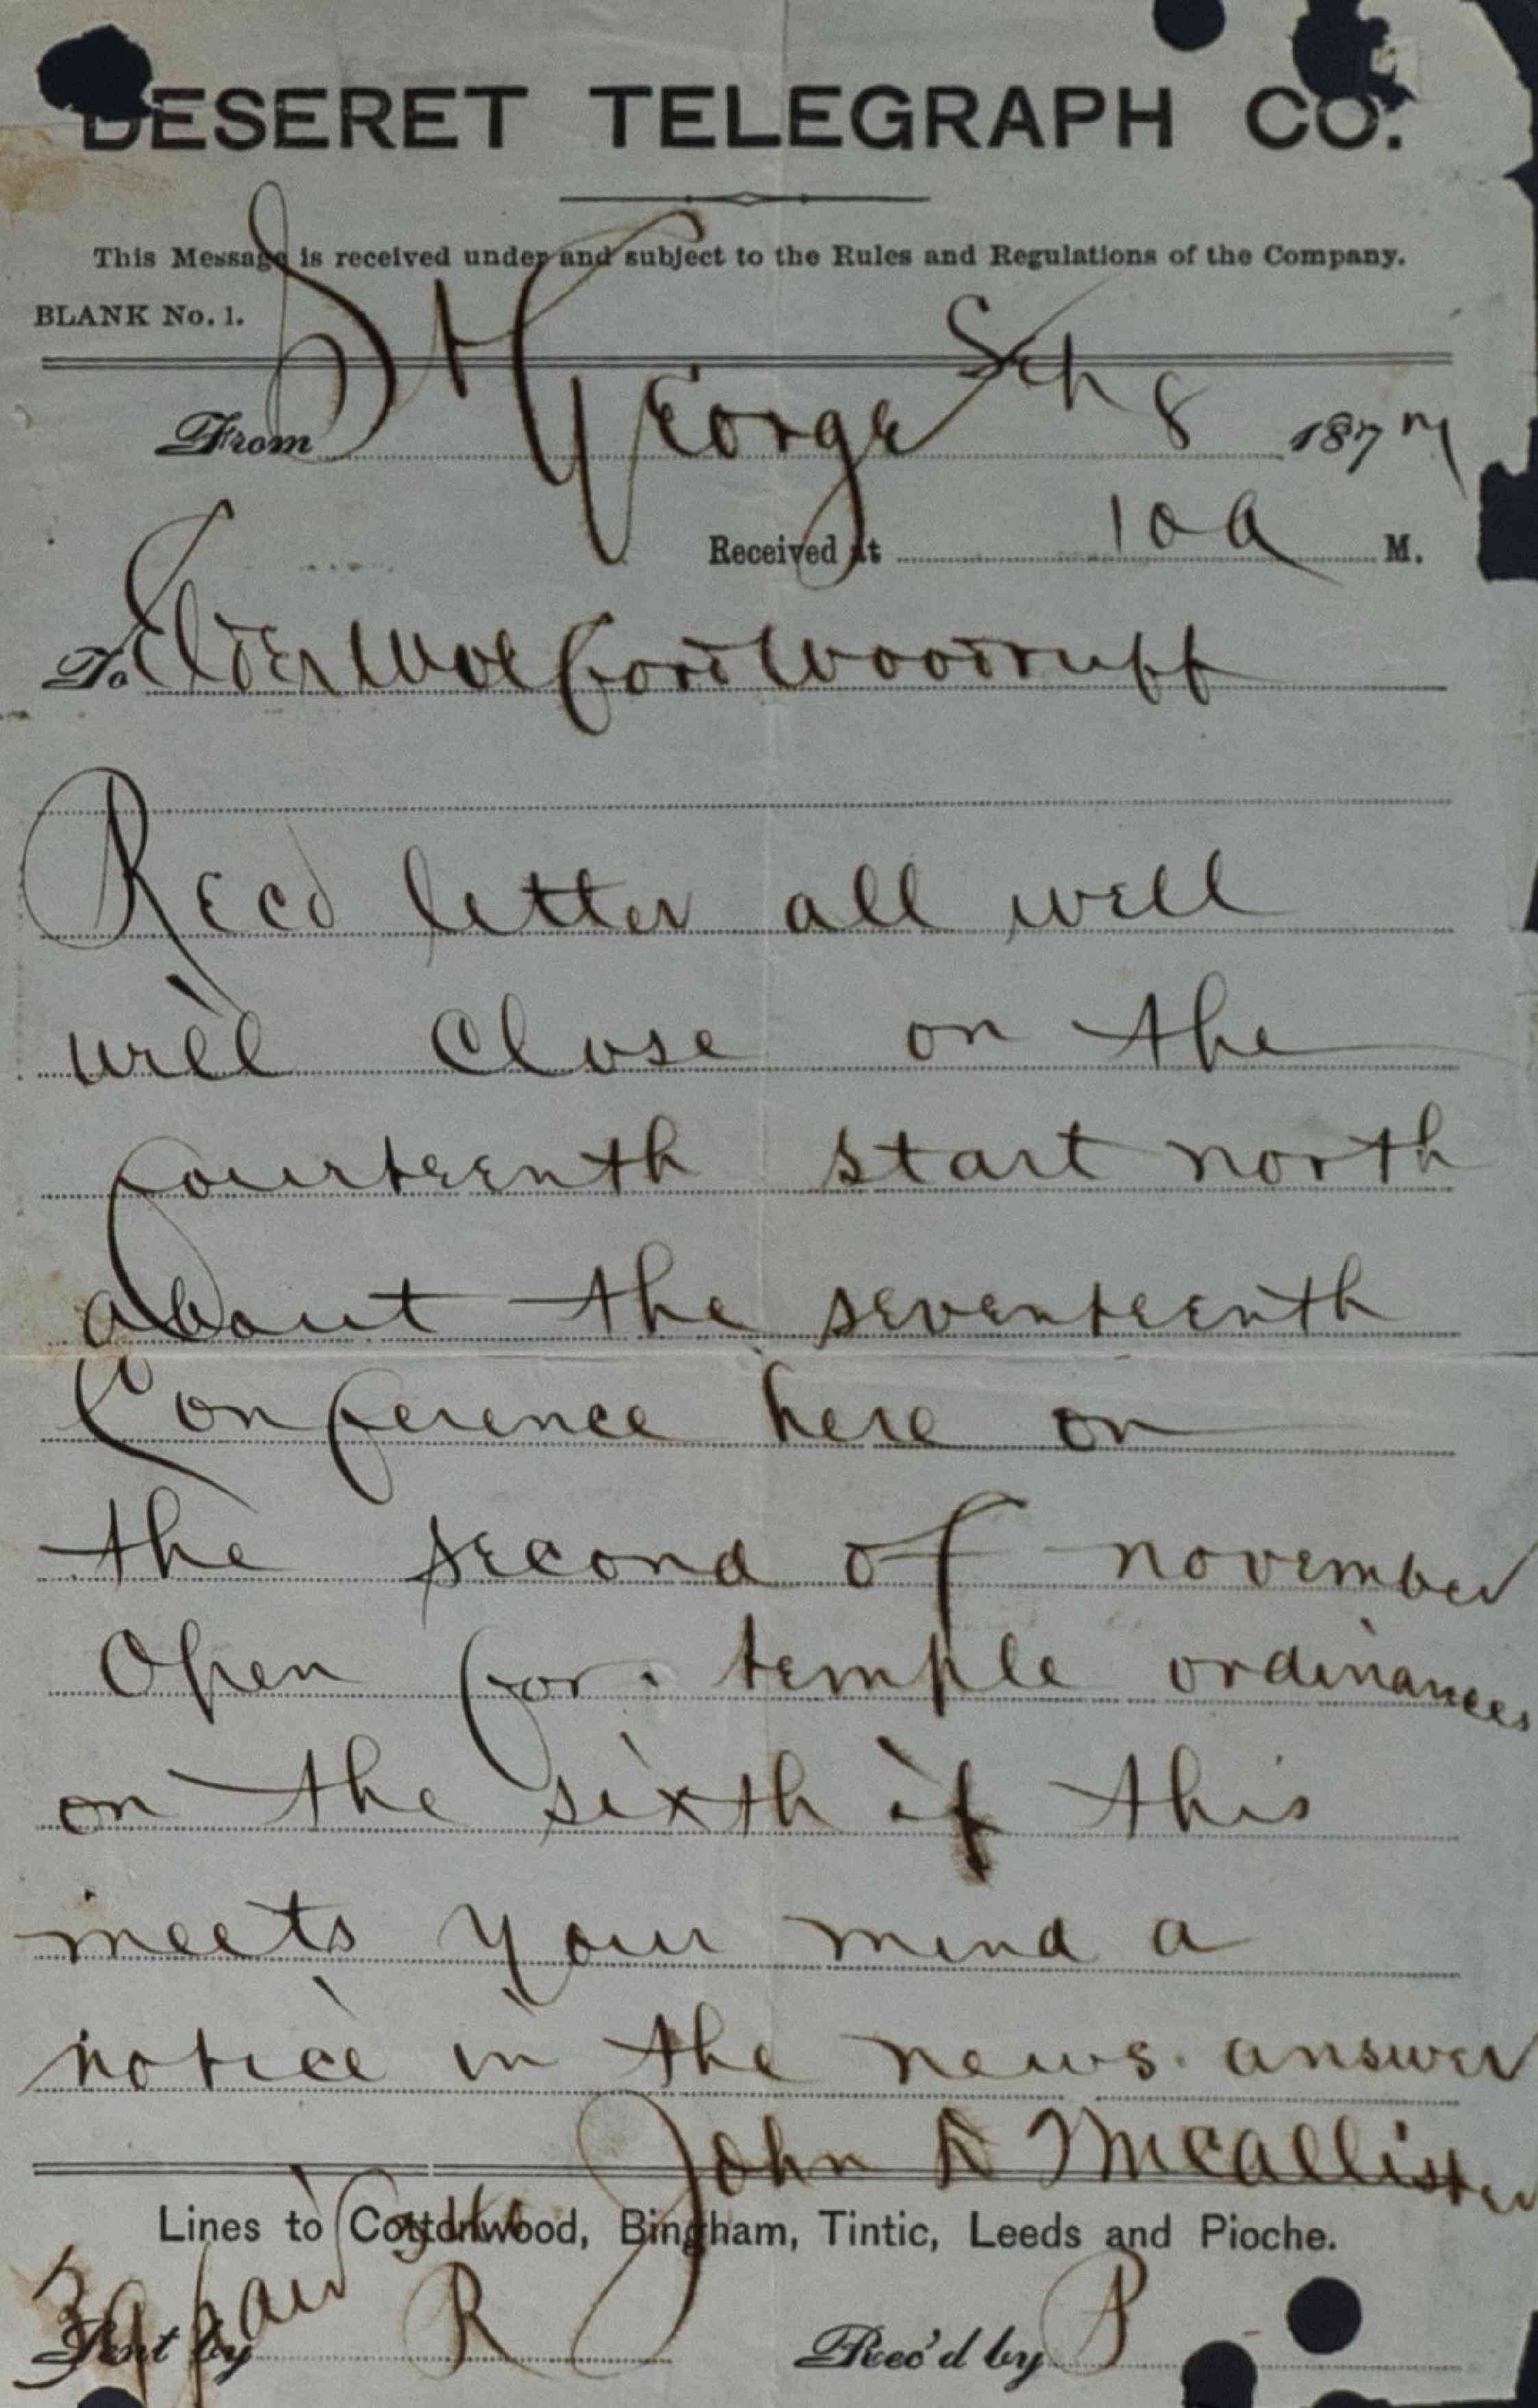 DESERET TELEGRAPH CO.
This Message is received under and subject to the Rules and Regulations of the Company.
BLANK No. 1.
From St George Sep 8 1877
Received at 10 a M.
To Elder Wolford Woodruff
Recd letter all well
will close on the
fourteenth start north
about the seventeenth
Conference here on
the second of november
Open for temple ordinances
on the sixth if this
meets your mind a
notice in the news. answer
John D Mcallister
Lines to Cottonwood, Bingham, Tintic, Leeds and Pioche.
39 paid
Sent by R Rec'd by P